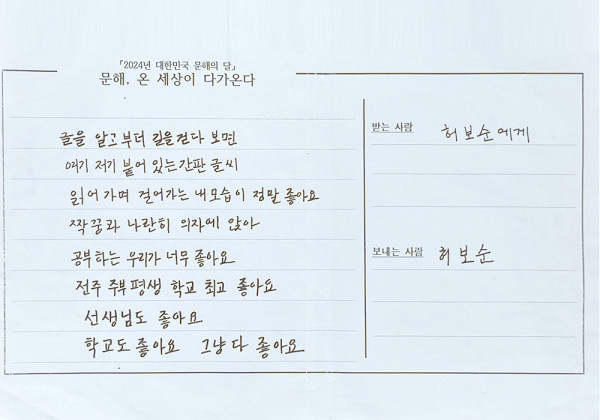 「2024년 대한민국 문해의 달」
문해, 온 세상이 다가온다
글을 알고부터 길을 걷다 보면
여기 저기 붙어 있는 간판 글씨
읽어 가며 걸어가는 내 모습이 정말 좋아요
짝꿍과 나란히 의자에 앉아
공부하는 우리가 너무 좋아요
전주 주부 평생 학교 최고 좋아요
선생님도 좋아요
학교도 좋아요 그냥 다 좋아요
받는 사람 허보순에게
보내는 사람 허보순